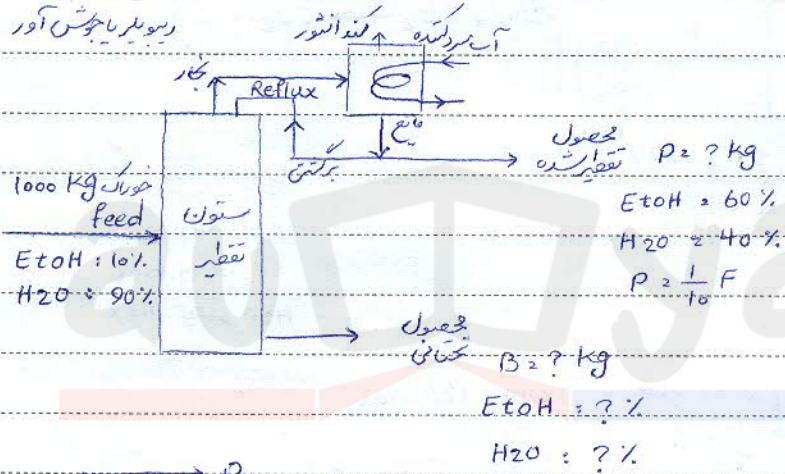 ریبویلر یا جوش آور
کندانسور
آب سرد کننده
بخار
Reflux
مایع
برگشتی
محصول
تقطیر شده
P = ? kg
EtOH = 60 %
H2O = 40 %
P = 1/10 F
1000 kg خوراک
feed
EtOH : 10%
H2O : 90%
ستون
تقطیر
محصول
تحتانی
B = ? kg
EtOH : ? %
H2O : ? %